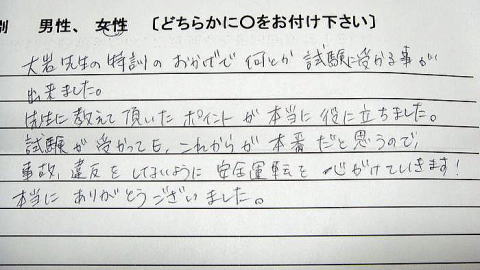 別 男性、 女性 〔どちらかに〇をお付け下さい〕
大岩先生の特訓のおかげで何とか試験に受かる事が
出来ました。
先生に教えて頂いたポイントが本当に役に立ちました。
試験が受かっても、これからが本番だと思うので、
事故、違反をしないように安全運転を心がけていきます!
本当にありがとうございました。